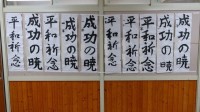 成功の暁
成功の暁
平和祈念
平和祈念
平和祈念
成功の暁
平和祈念
平和祈念
成功の暁
平和祈念